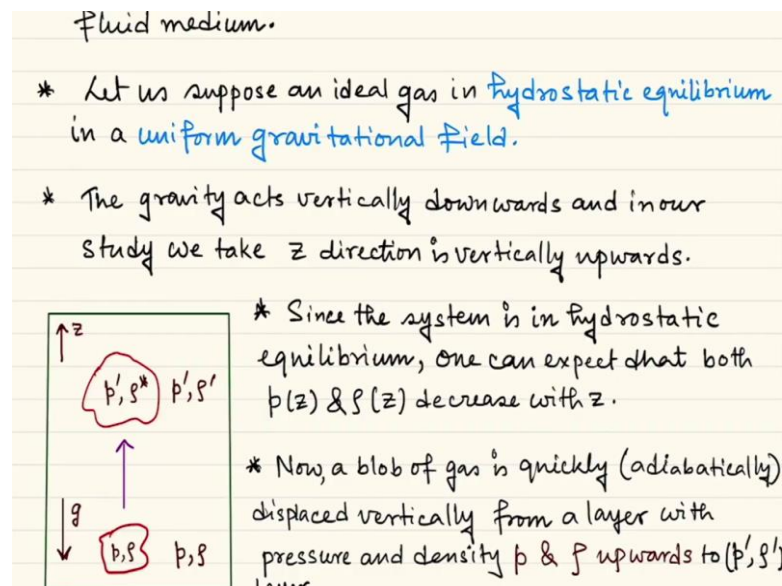 fluid medium.
* Let us suppose an ideal gas in hydrostatic equilibrium
in a uniform gravitational field.
* The gravity acts vertically downwards and in our
study we take z direction is vertically upwards.
* Since the system is in hydrostatic
equilibrium, one can expect that both
p(z) & ρ(z) decrease with z.
* Now, a blob of gas is quickly (adiabatically)
displaced vertically from a layer with
pressure and density p & ρ upwards to (p',ρ')
z
p', ρ* p', ρ'
g
p,ρ p,ρ